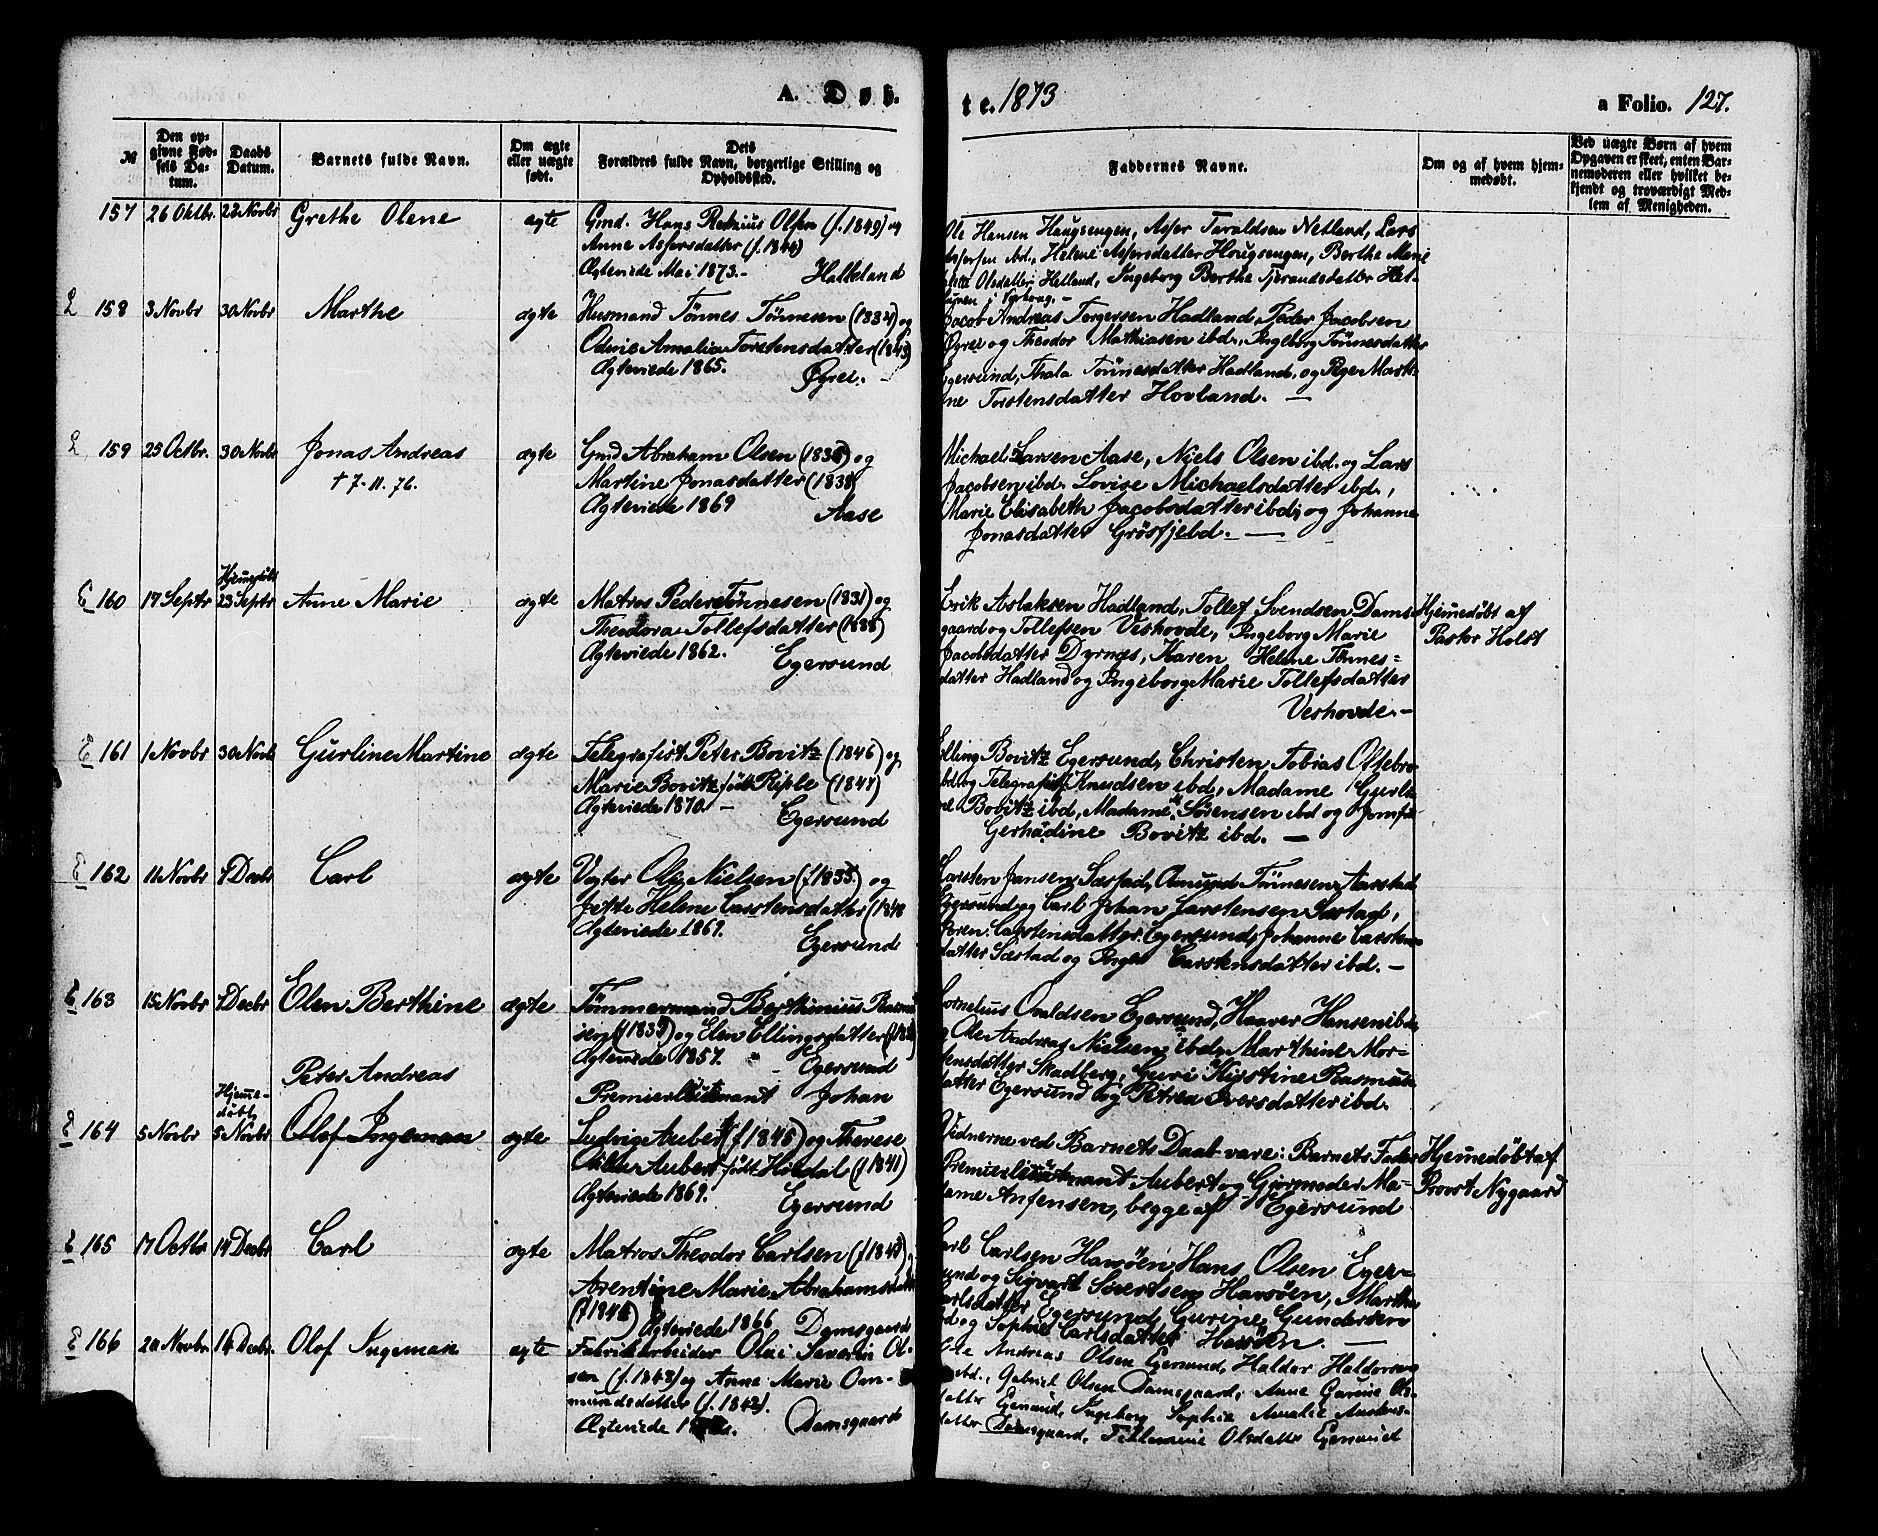 A. Døb-
te. 1873
a Folio. 127.
№
Den op-
givne Fød-
sels Da-
tum.
Daabs
Datum.
Barnets fulde Navn.
Om ægte
eller uægte
født.
Dets
Forældres fulde Navn, borgerlige Stilling og
Opholdssted.
Faddernes Navne.
Om og af hvem hjem-
medøbt.
Ved uægte Børn af hvem
Opgaven er skeet, enten Bar-
nemoderen eller hvilket be-
kjendt og troværdigt Med-
lem af Menigheden.
157 26 Oktbr. 22 Novbr Grethe Olene ægte Gmd. Hans Olsen (f. 1849) og
Anne Asfersdatter
Ægteviede Mai 1873.- Halleland
Ole Hansen Haugsengen, Asfer Taraldsen Netland, Lars
Asfersen ibd., Helene Asfersdatter Hougsengen, Berthe Marie
Olsdatter Hetland, Ingeborg Berthe Tjerandsdatter Het-
158 3 Novbr 30 Novbr Marthe ægte Husmand Tönnes Tönnesen og
Amalia Torstensdatter (1843)
Ægteviede 1865. Øgree. -
Jacob Andreas Torgersen Hadland, Peder Jacobsen
Øgree og Theodor Mathiasen ibd., Ingeborg Tönnesdatter
Egersund, Thala Tönnesdatter Hadland og Marti-
ne Torstensdatter Hovland. —
159 25 Octbr. 30 Novbr Jonas Andreas ægte Gmd Abraham Olsen og
† 7-11.76.
Martine Jonasdatter (1838
Ægteviede 1869 Aase
Michael Larsen Aase, Niels Olsen ibd. og Lars
Jacobsen ibd. Lovise Michaelsdatter ibd.,
Marie Elisabeth Jacobsdatter ibd, og Johanne
Jonasdatter Grösfjeld. —
Hjemedöbt
E 160 17 Septr 23 Septr Anne Marie ægte Matros Peder Tönnesen (1831) og
Theodora Tollefsdatter (1838)
Ægteviede 1862. Egersund
Erik Aslaksen Hadland, Tollef Svendsen Dams-
gaard og Tollefsen Veshovde, Ingeborg Marie
Jacobsdatter Dyrnæs, Karen Helene Tönnes=
datter Hadland og Ingeborg Marie Tollefsdatter
Veshovde.-
Hjemedöbt af
Pastor Holst
E 161 1 Novbr 30 Novb Gurline Martine ægte Telegrafist Peter Bovitz (1846) og
Marie Bovitz født Riple (1847)
Ægteviede 1870. - Egersund
Elling Bovitz Egersund, Christen Tobias Ottebro
ibd og Telegrafist Knudsen ibd, Madame Gurli-
ne Bovitz ibd, Madame Sörensen ibd og Jomfru
Gerhadine Bovitz ibd. —
E 162 11 Novbr 7 Decbr Carl ægte Vegter Nielsen og
Helene Carstensdatter (1840
Ægteviede 1869. Egersund
Carsten Jansen Sæstad, Tönnesen Aarstad
Egersund og Carl Johan Carstensen Sæstad,
Carstensdatter Egersund, Johanne Carsten-
datter Sæstad og Inger Carstensdatter ibd. -
E 163 15 Novbr 7 Decbr Elen Berthine ægte Tömmermand Berthinius Rasmu-
sen og Elen Ellingsdatter
Ægteviede 1857. Egersund
Cornelius Omldsen Egersund, Haaver Hansen ibd,
og Ole Andreas Nielsen ibd, Marthine Mor-
tensdatter Skadberg, Guri Kistine Rasmus-
datter Egersund og Petrea Iversdatter ibd.
Peter Andreas
Hjeme-
döbt,
E 164 5 Novbr 5 Novbr Olof Ingeman ægte Premierlieutenant Johan
Ludvig Aubert (f 1845) og Therese
Aubert født Hiordal (f 1841)
Ægteviede 1869. Egersund
Vidnerne ved Barnets Daab vare: Barnets Fader
Premierlieutenant Aubert og Gjormoder Ma-
dame Anfensen, begge af Egersund
Hjemedöbt af
Provst Nygaard
E 165 17 Octbr 14 Decbr Carl ægte Matros Theodor Carlsen
Arentine Marie Abrahamsdatter
Ægteviede 1866 Damsgaard
Carl Carlsen Havsöen, Hans Olsen Eger=
sund og Sigvart Sivertsen Havsöen, Marthe
Carlsdatter Egersund, Gurine Gundersen
ibd og Sophie Carlsdatter Havsöen. —
E 166 20 Novbr 14 Decbr. Olof Ingeman ægte Fabrikarbeider Olai Severin Ol-
sen (f. 1848) og Anne Marie Om-
mundsdatter (f. 1842).
Ægteviede Damsgaard
Ole Andreas Olsen Egersund, Halder Haldorsen
ibd., Gabriel Olsen Damsgaard, Anne Gurine Ols-
datter Egersund, Ingeborg Sophie Amalie Anders-
datter Damsgaard, Tillemine Olsdatter Egersund